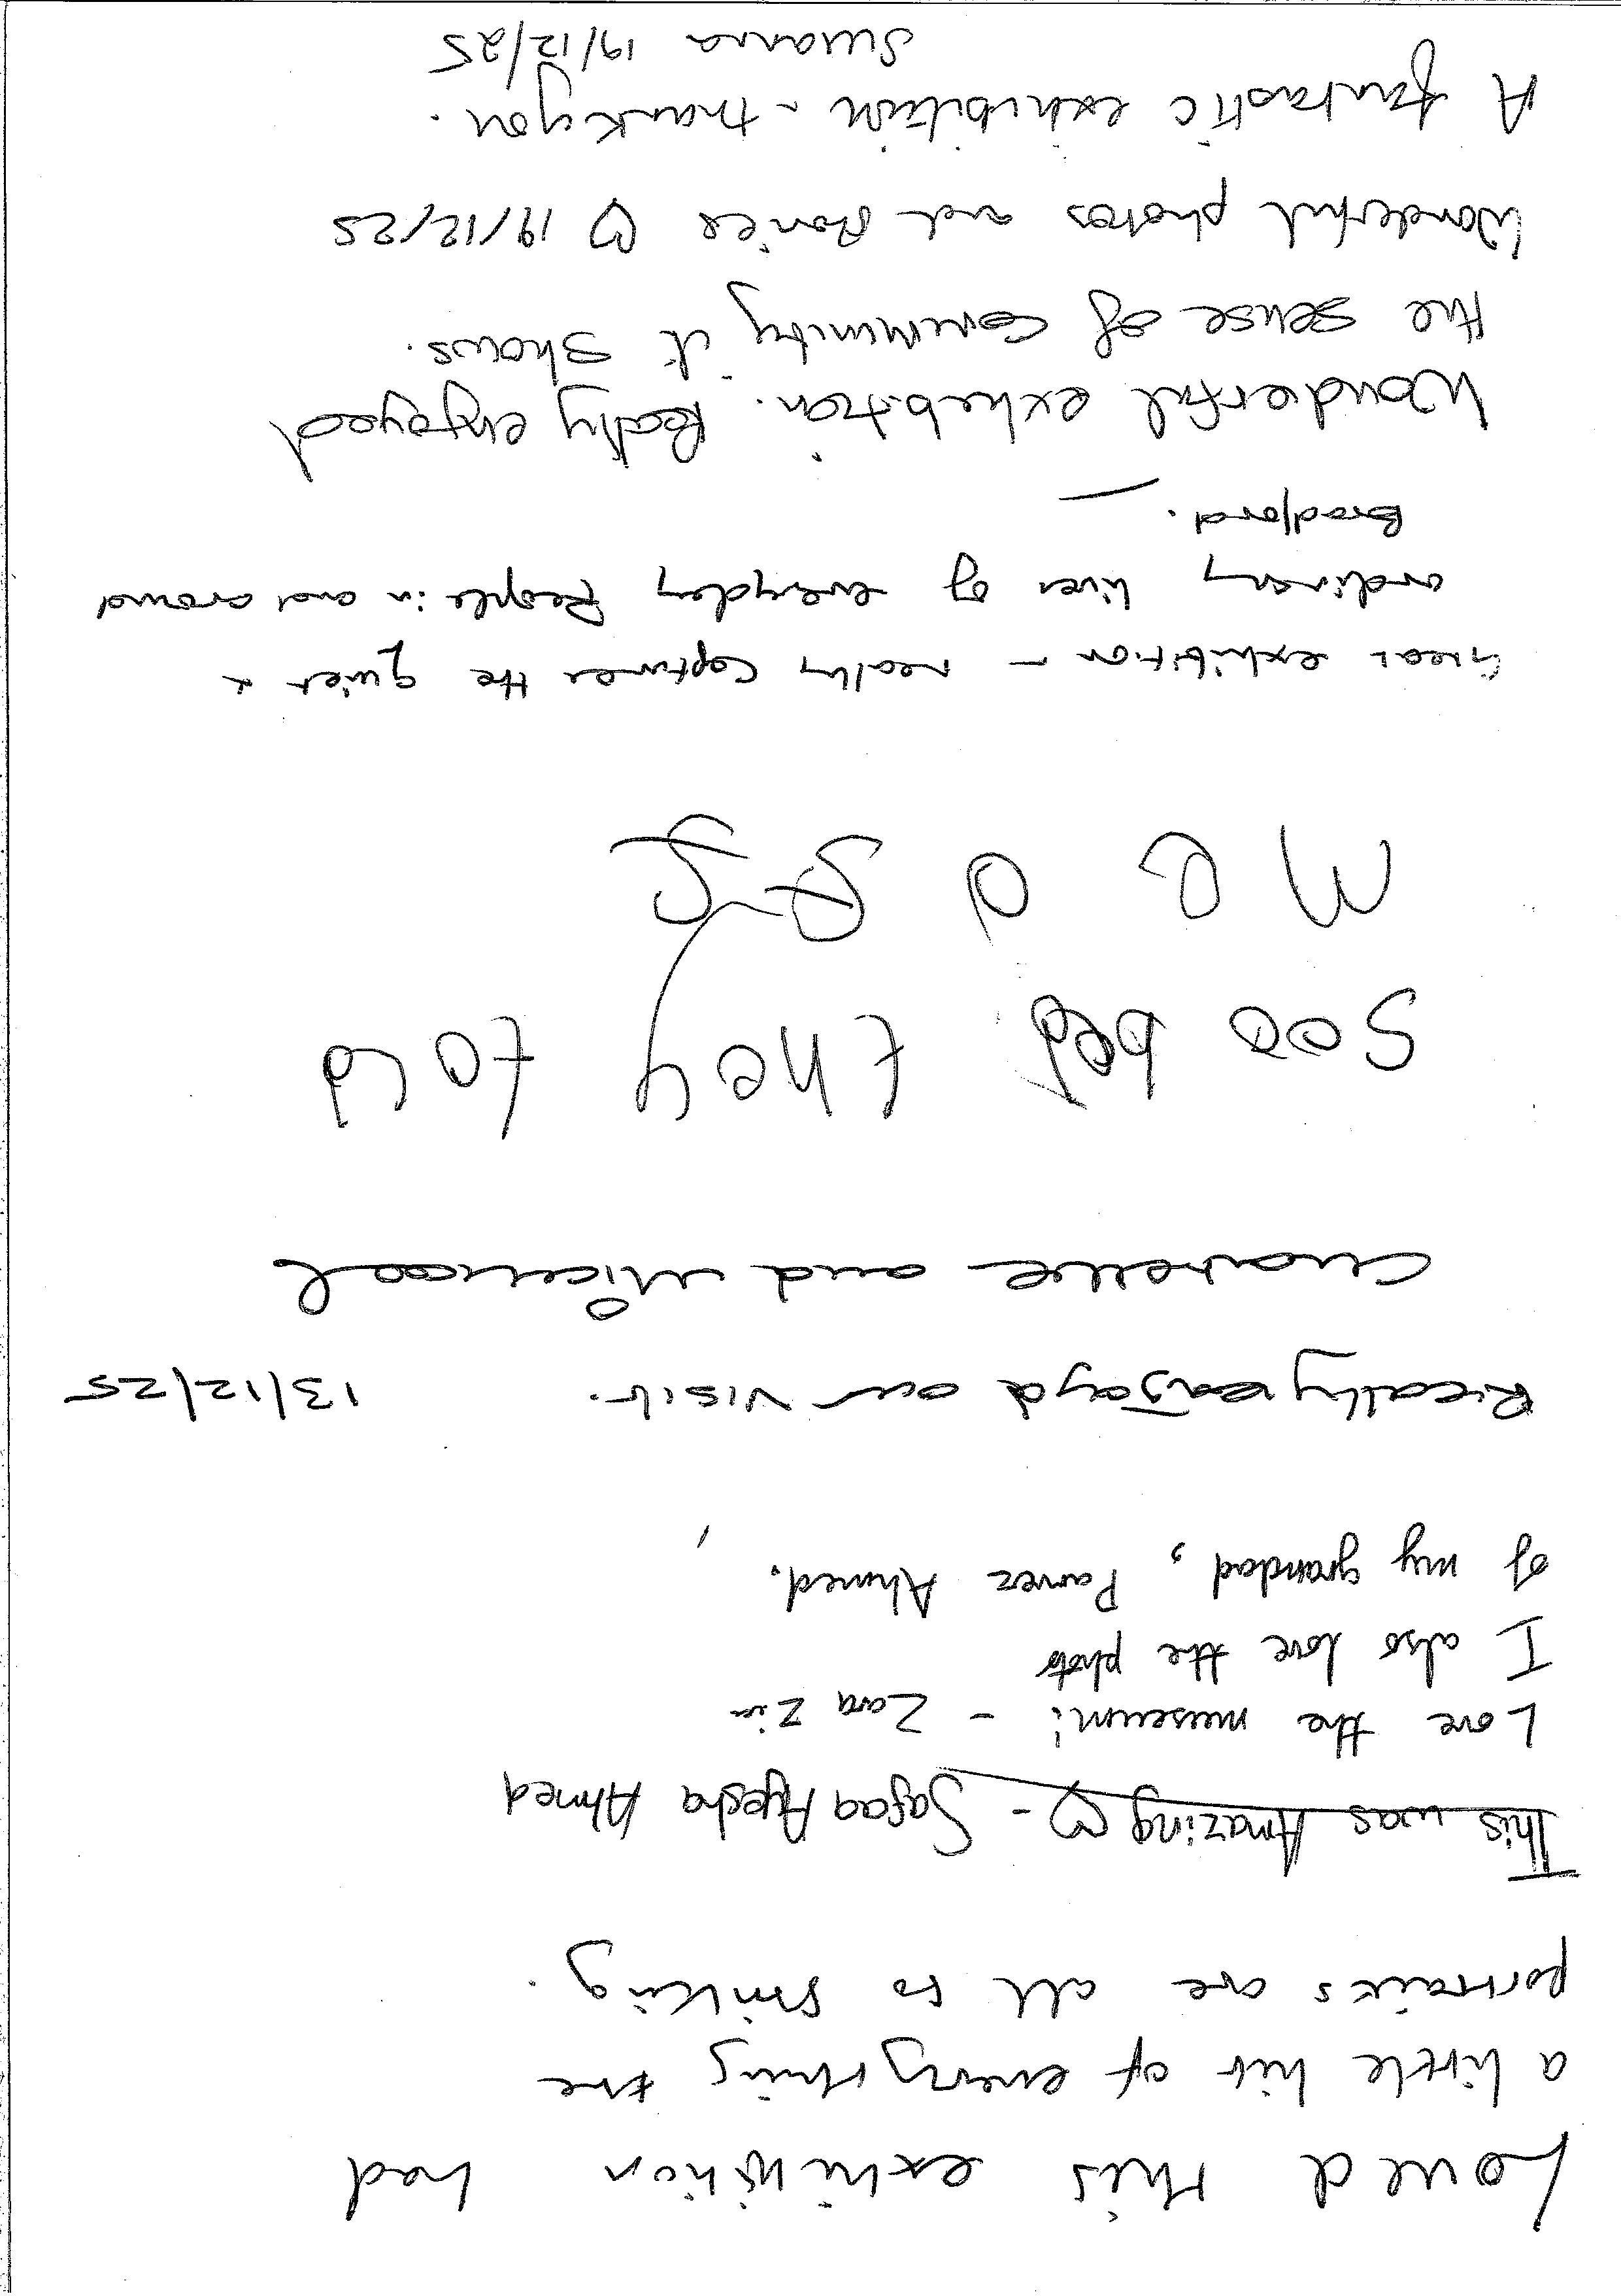 Loved this exhibition had
a little bit of everything the
portraits are all so striking.
This was Amazing ♡ - Safaa Ayesha Ahmed
Love the museum! - Zara Zia
I also love the photo
of my grandad, Parvez Ahmed.
Really enjoyd our visit. 13/12/25
and Micheal
Soo bad they told
me a
Great exhibition - really captures the quiet &
ordinary lives of everyday People in and around
Bradford.
Wonderful exhibition. Really enjoyed
the sense of Community it shows.
Wonderful photos and stories ♡ 19/12/25
A fantastic exhibition - thankyou.
19/12/25